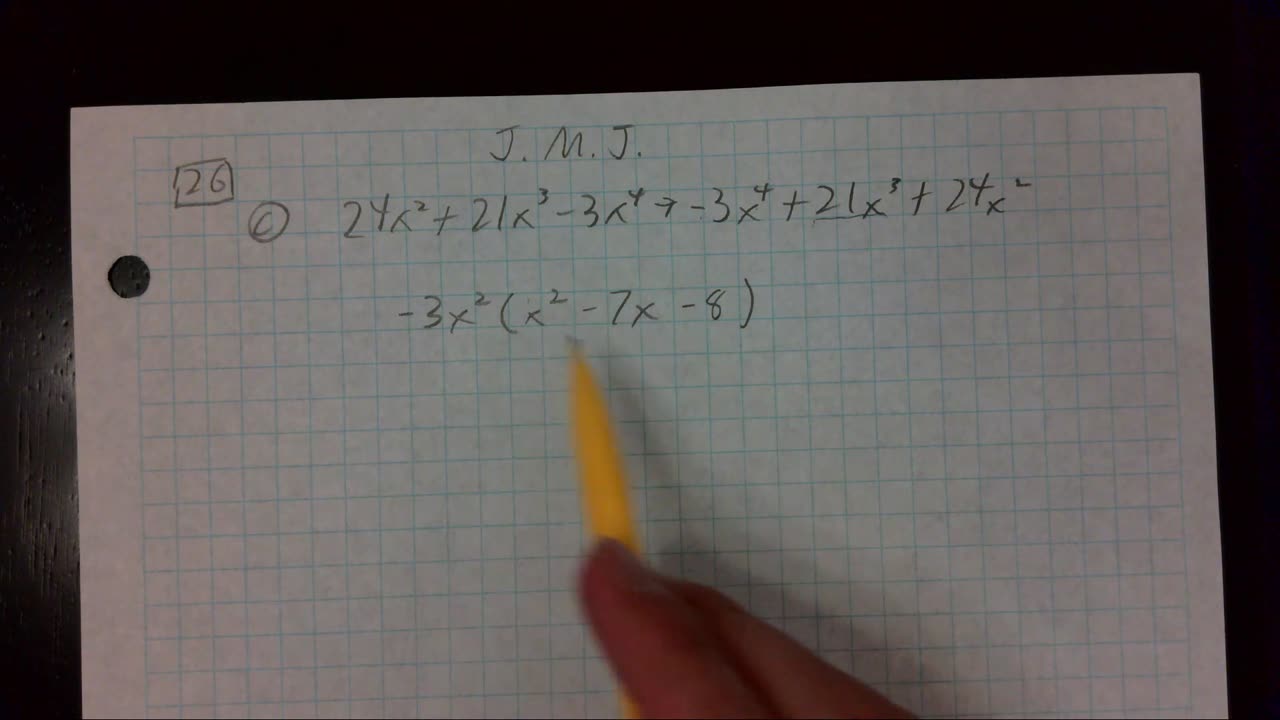 J. M. J.
26
c 24x² + 21x³ - 3x⁴ → -3x⁴ + 21x³ + 24x²
-3x² (x² - 7x - 8)